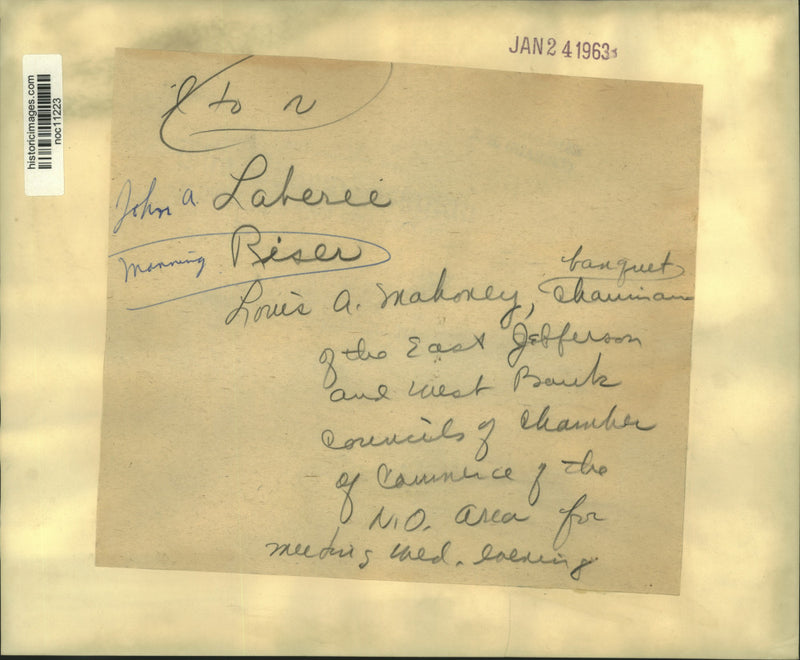 JAN 24 1963
historicimages.com
noc11223
l to r
John A. Laberee
Manning Riser
banquet
Louis A. Mahoney, chairman
of the East Jefferson
and West Bank
Councils of Chamber
of Commerce of the
N.O. Area for
meeting Wed. evening